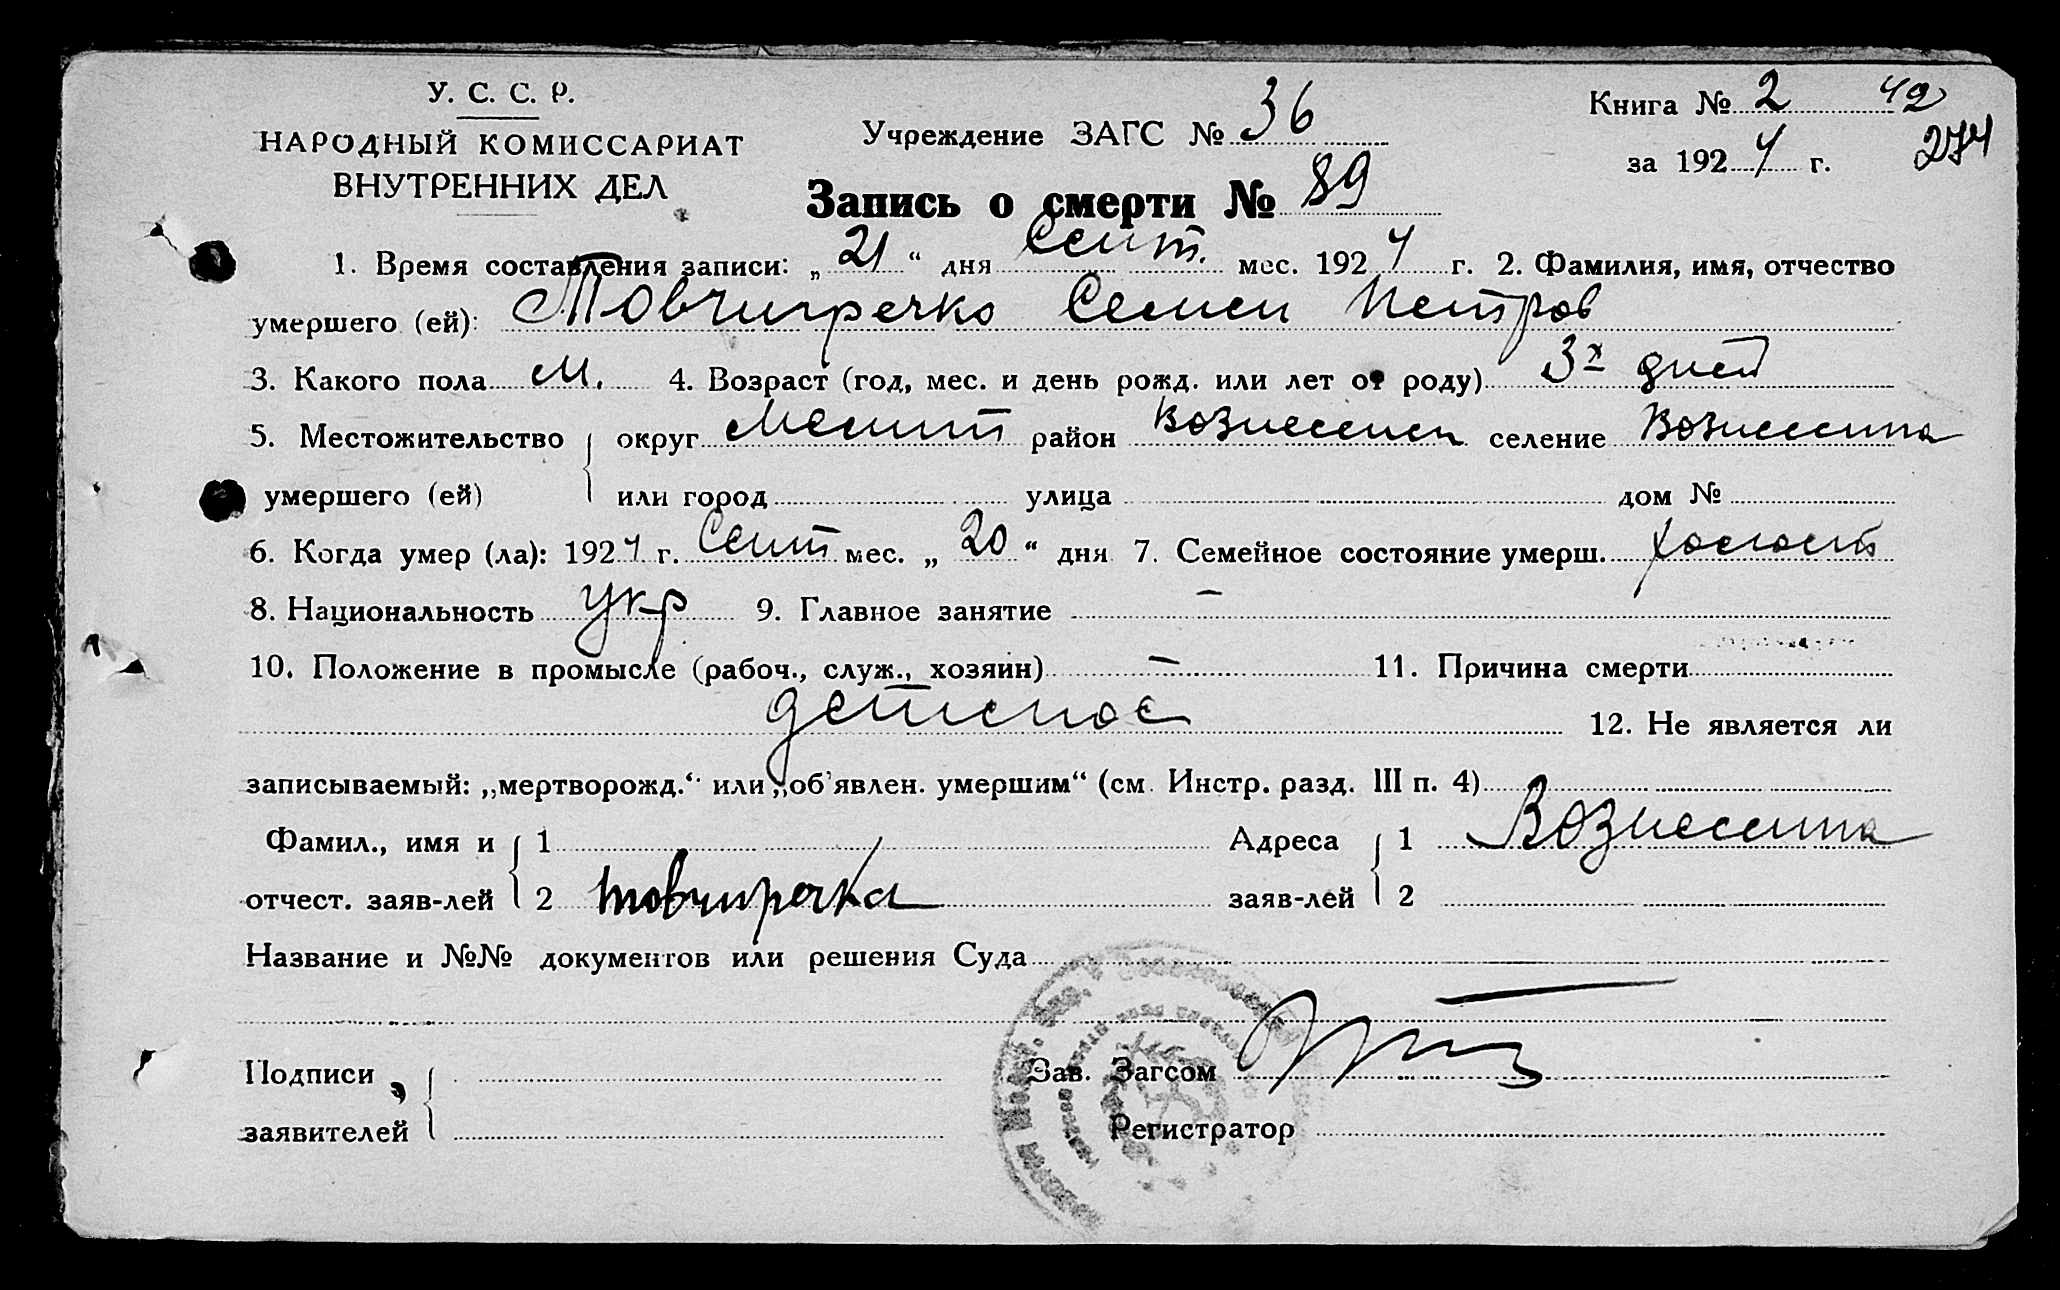 У. С. С. Р.
НАРОДНЫЙ КОМИССАРИАТ
ВНУТРЕННИХ ДЕЛ
Учреждение ЗАГС № 36
Книга № 2 42
за 1924 г. 274
Запись о смерти № 89
1. Время составления записи: „21“ дня Сент. мес. 1924 г. 2. Фамилия, имя, отчество
умершего (ей): Товчигречко Семен Петров
3. Какого пола м. 4. Возраст (год, мес. и день рожд. или лет от роду) 3х дней
5. Местожительство округ Мелит район Вознесенск селение Вознесенка
умершего (ей) или город улица дом №
6. Когда умер (ла): 1924 г. Сент мес. „20“ дня 7. Семейное состояние умерш. холост
8. Национальность укр 9. Главное занятие —
10. Положение в промысле (рабоч., служ., хозяин) — 11. Причина смерти
детское 12. Не является ли
записываемый: „мертворожд.“ или „об'явлен. умершим“ (см. Инстр. разд. III п. 4)
Фамил., имя и 1 Адреса 1 Вознесенка
отчест. заяв-лей 2 товчигречка заяв-лей 2
Название и №№ документов или решения Суда
Подписи Зав. Загсом
заявителей Регистратор